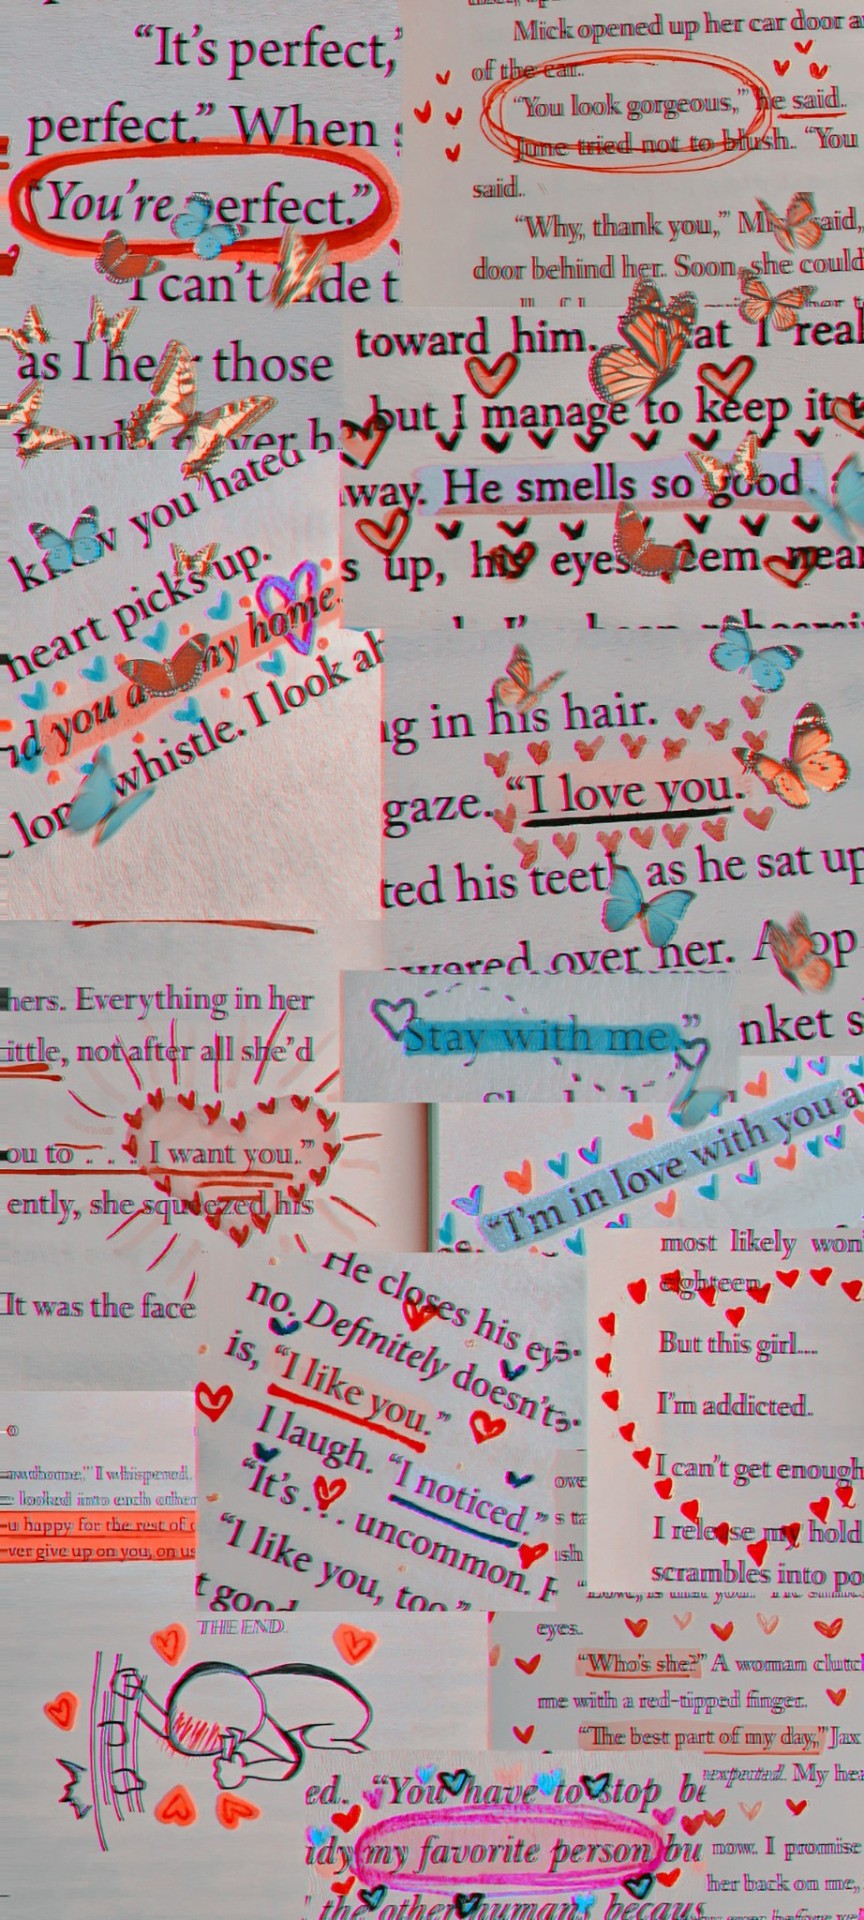 “It’s perfect,”
perfect.” When
“You’re perfect.”
I can’t hide t
as I hear those
Mick opened up her car door a
of the car.
“You look gorgeous,” he said.
June tried not to blush. “You
said.
“Why, thank you,” Mick said,
door behind her. Soon, she could
toward him. I real
but I manage to keep it t
way. He smells so good.
s up, his eyes seem near
know you hated
heart picks up.
nd you are my home.
long whistle. I look ah
ng in his hair.
gaze. “I love you.
ted his teeth as he sat up
wered over her. A
hers. Everything in her
ittle, not after all she’d
ou to . . . I want you.”
ently, she squeezed his
It was the face
Stay with me.”
nket s
“I’m in love with you a
He closes his eyes.
no. Definitely doesn’t
is, “I like you.”
I laugh. “I noticed.”
“It’s . . . uncommon.
“I like you, too.”
t good
most likely won’
eighteen.
But this girl....
I’m addicted.
I can’t get enough
I release my hold
scrambles into po
I whispered.
looked into each other
u happy for the rest of
ver give up on you, on us
THE END.
eyes.
“Who’s she?” A woman clutch
me with a red-tipped finger.
“The best part of my day,” Jax
expected. My hea
now. I promise
her back on me,
ed. “You have to stop be
my favorite person bu
the other humans becaus